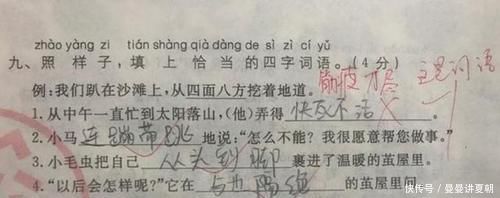 zhào yàng zi tián shàng qià dàng de sì zì cí yǔ
九、照样子,填上恰当的四字词语。(4分)
筋疲力尽 主是词语
例:我们趴在沙滩上,从四面八方挖着地道。
1.从中午一直忙到太阳落山,(他)弄得快友不活
2.小马连蹦带跳地说:“怎么不能?我很愿意帮您做事。”
3.小毛虫把自己从头到脚裹进了温暖的茧屋里。
4.“以后会怎样呢?”它在与世隔绝的茧屋里问
快传号/曼曼讲夏朝